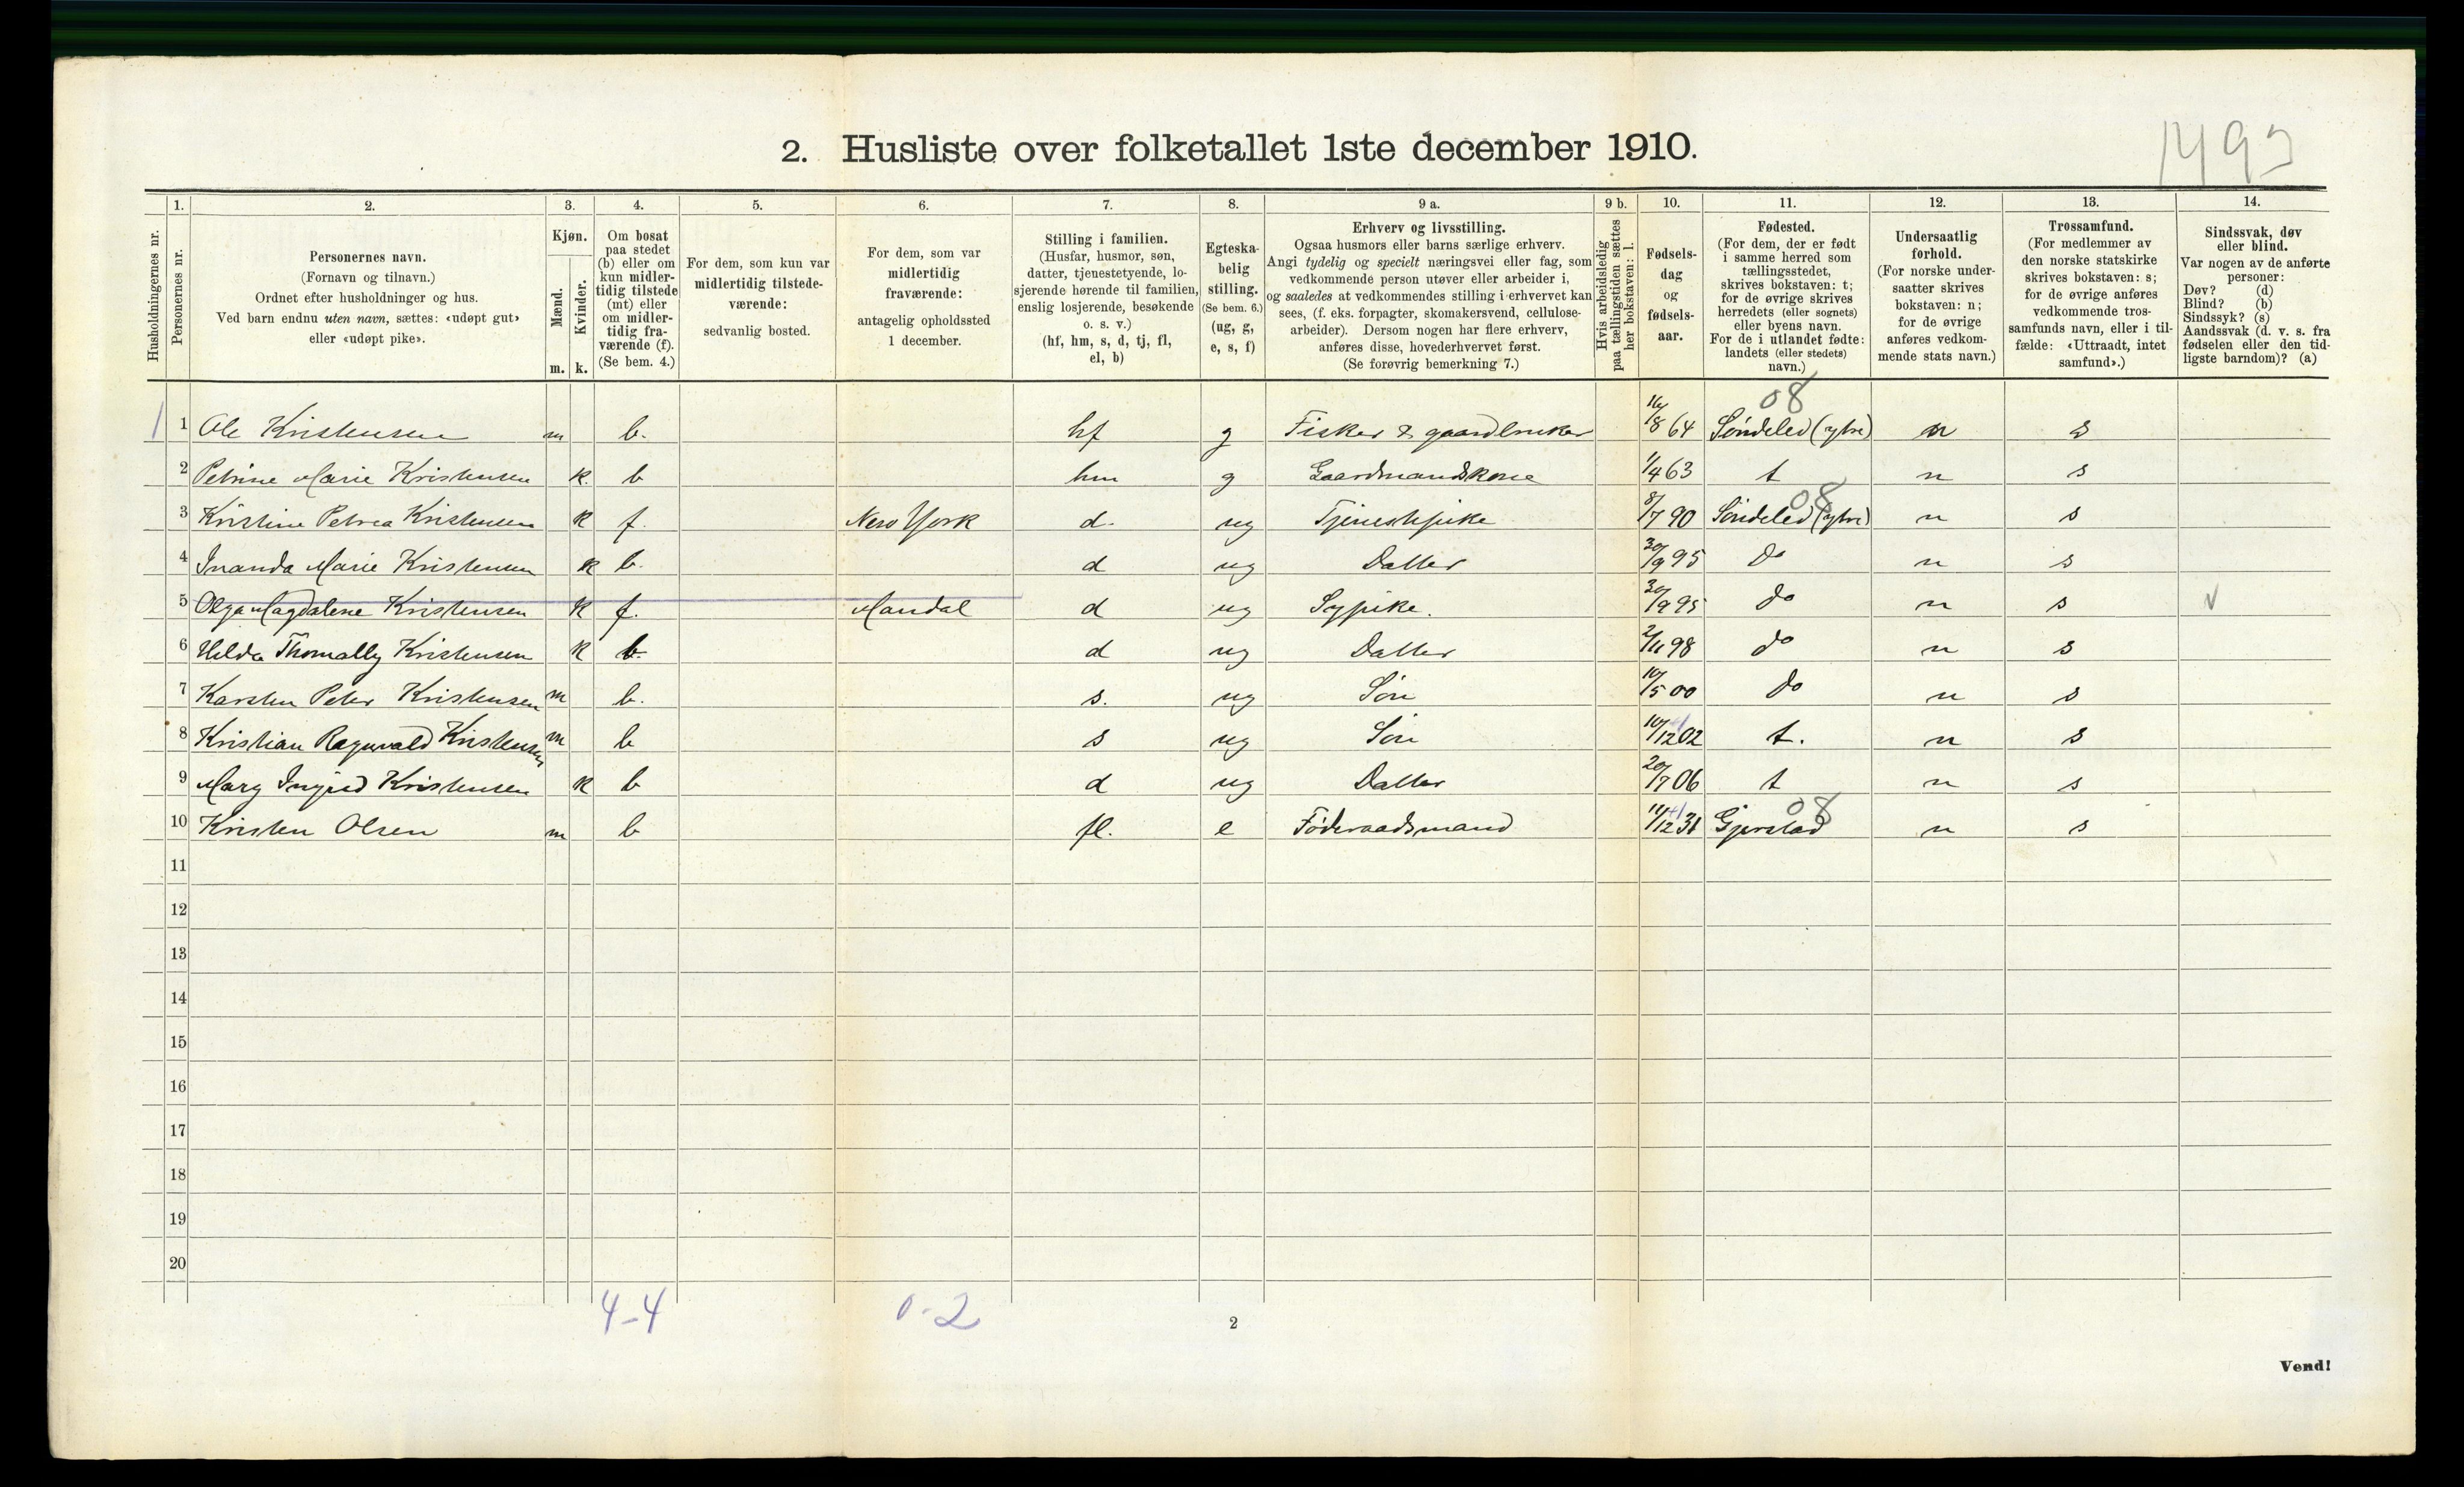 2. Husliste over folketallet 1ste december 1910.
1493
1. 2. 3. 4. 5. 6. 7. 8. 9 a. 9 b. 10. 11. 12. 13. 14.
Husholdningernes nr.
Personernes nr.
Personernes navn.
(Fornavn og tilnavn.)
Ordnet efter husholdninger og hus.
Ved barn endnu uten navn, sættes: «udøpt gut»
eller «udøpt pike».
Kjøn.
Mænd.
Kvinder.
m. k.
Om bosat
paa stedet
(b) eller om
kun midler-
tidig tilstede
(mt) eller
om midler-
tidig fra-
værende (f).
(Se bem. 4.)
For dem, som kun var
midlertidig tilstede-
værende:
sedvanlig bosted.
For dem, som var
midlertidig
fraværende:
antagelig opholdssted
1 december.
Stilling i familien.
(Husfar, husmor, søn,
datter, tjenestetyende, lo-
sjerende hørende til familien,
enslig losjerende, besøkende
o. s. v.)
(hf, hm, s, d, tj, fl,
el, b)
Egteska-
belig
stilling.
(Se bem. 6.)
(ug, g,
e, s, f)
Erhverv og livsstilling.
Ogsaa husmors eller barns særlige erhverv.
Angi tydelig og specielt næringsvei eller fag, som
vedkommende person utøver eller arbeider i,
og saaledes at vedkommendes stilling i erhvervet kan
sees, (f. eks. forpagter, skomakersvend, cellulose-
arbeider). Dersom nogen har flere erhverv,
anføres disse, hovederhvervet først.
(Se forøvrig bemerkning 7.)
Hvis arbeidsledig
paa tællingstiden sættes
her bokstaven: l.
Fødsels-
dag
og
fødsels-
aar.
Fødested.
(For dem, der er født
i samme herred som
tællingsstedet,
skrives bokstaven: t;
for de øvrige skrives
herredets (eller sognets)
eller byens navn.
For de i utlandet fødte:
landets (eller stedets)
navn.)
Undersaatlig
forhold.
(For norske under-
saatter skrives
bokstaven: n;
for de øvrige
anføres vedkom-
mende stats navn.)
Trossamfund.
(For medlemmer av
den norske statskirke
skrives bokstaven: s;
for de øvrige anføres
vedkommende tros-
samfunds navn, eller i til-
fælde: «Uttraadt, intet
samfund».)
Sindssvak, døv
eller blind.
Var nogen av de anførte
personer:
Døv? (d)
Blind? (b)
Sindssyk? (s)
Aandssvak (d. v. s. fra
fødselen eller den tid-
ligste barndom)? (a)
08
1 1 Ole Kristensen m b. hf g Fisker & gaardbruker 16/8 64 Søndeled (ytre) n s
2 Petrine Marie Kristensen k. b hm g Gaardmandskone 1/4 63 t n s
08
3 Kristine Petrea Kristensen k f. New York d. ug Tjenestepike 8/7 90 Søndeled (ytre) n s
4 Inanda Marie Kristensen k b. d ug Datter 30/9 95 do n s
5 Olga Magdalene Kristensen k f. Mandal d ug Sypike. 30/9 95 do n s v
6 Hilda Thomally Kristensen k b. d ug Datter 2/11 98 do n s
7 Karsten Peter Kristensen m b. s. ug Søn 10/5 00 do n s
8 Kristian Ragnvald Kristensen m b s ug Søn 10/12 02 t. n s
9 Mary Ingrid Kristensen k b d ug Datter 20/7 06 t n s
08
10 Kristen Olsen m b fl. e Føderaadsmand 11/12 31 Gjerstad n s
11
12
13
14
15
16
17
18
19
20
4-4 0-2
2
Vend!